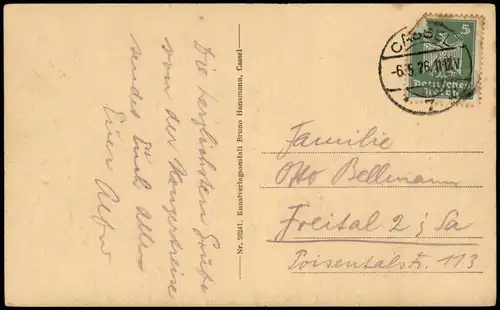 Die herzlichsten Grüße
von der Konzertreise
sendet Euch allen
Euer Alfred
Nr. 90241. Kunstverlagsanstalt Bruno Hansmann, Cassel
CASSEL
-6.5.26.11-12V.
* 7
5
Deutsches
Reich
Familie
Otto Bellmann
Freital 2 i/Sa
Poisentalstr. 113